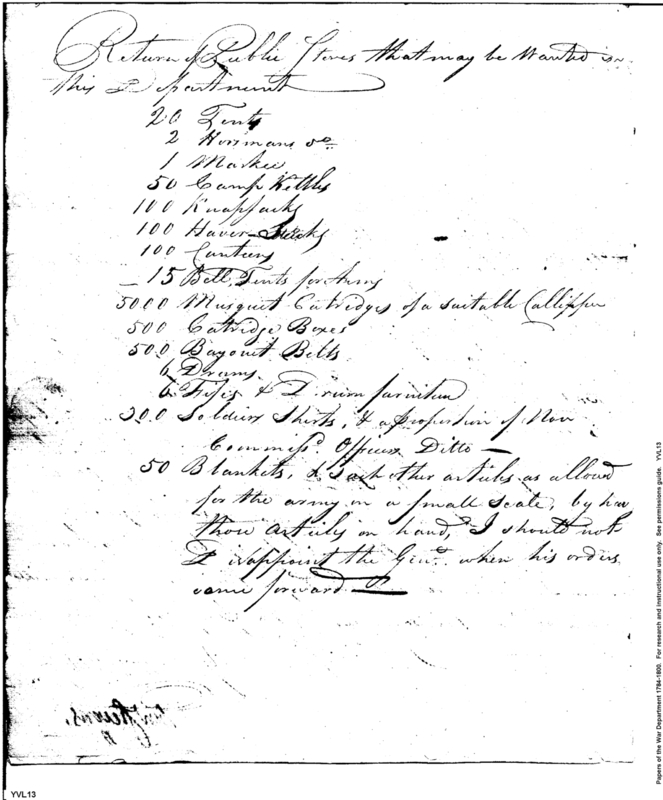 Return of Public Stores that may be Wanted in
this Department
20 Tents
2 Horsmans do
1 Markee
50 Camp Kettles
100 Knapsacks
100 Haver Sacks
100 Canteens
15 Bell Tents for Arms
5000 Musquet Catridges of a suitable Callipper
500 Catridge Boxes
500 Bayonet Belts
6 Drums
6 Fifes & Drum furniture
200 Soldiers Shirts, & a proportion of Non
Commissd. Officers Ditto —
50 Blankets, & Such other articles as allowed
for the army on a small scale, by have
those articles on hand, I should not
Disappoint the Genl. when his orders
came forward —
YVL13
Papers of the War Department 1784-1800. For research and instructional use only. See permissions guide. YVL13